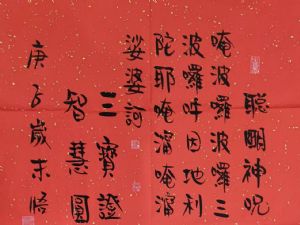 聰明神呪
唵波囉波囉三
波囉吽因地利
陀耶唵溜唵溜
娑婆訶
三寶證
智慧圓
庚子歲末悟